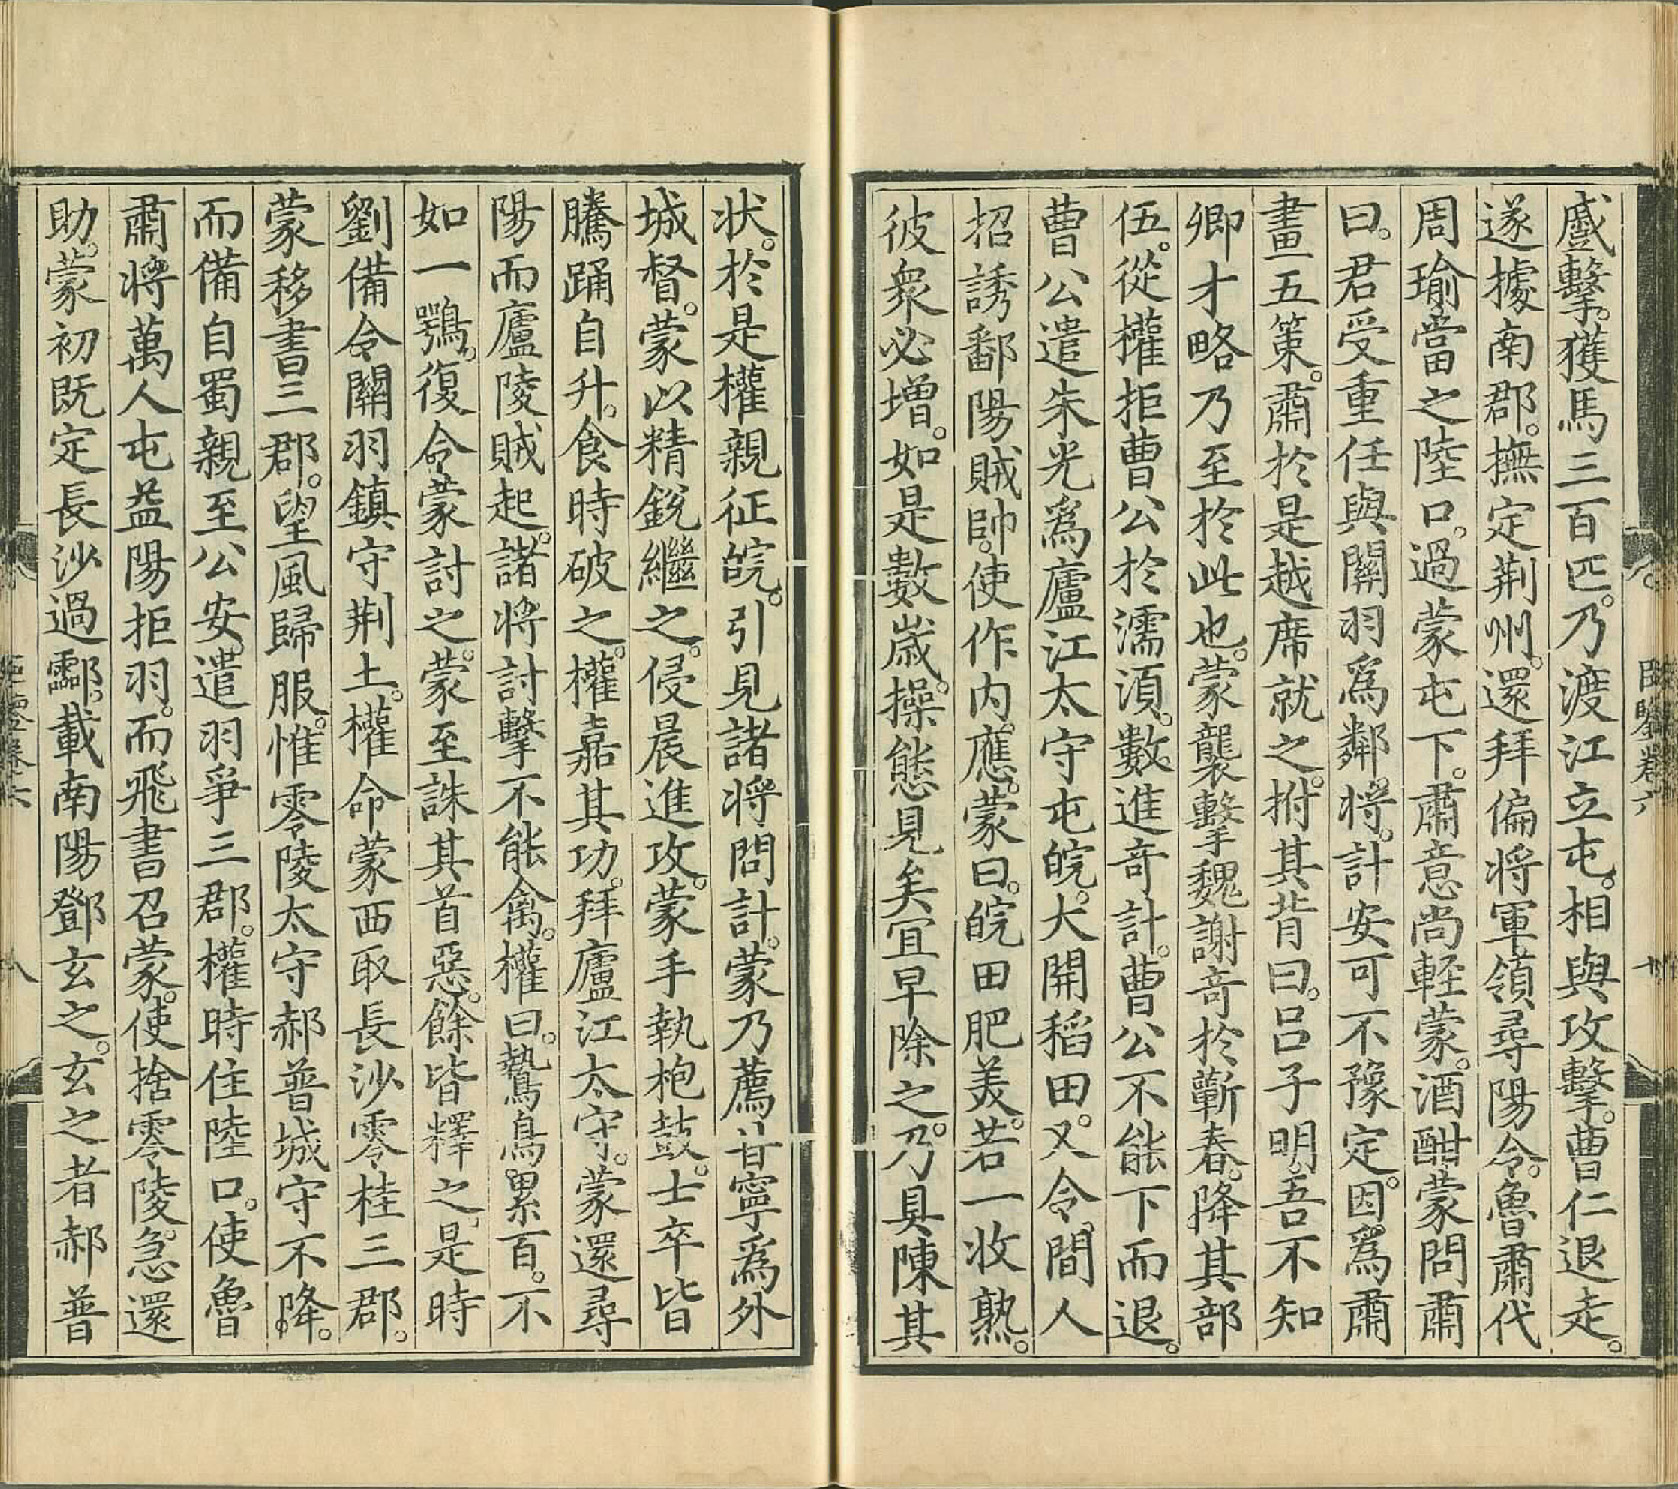 蹙擊。獲馬三百匹。乃渡江立屯。相與攻擊。曹仁退走。
遂據南郡。撫定荆州。還拜偏將軍領尋陽令。魯肅代
周瑜當之陸口。過蒙屯下。肅意尚輕蒙。酒酣蒙問肅
曰。君受重任與關羽爲鄰。將。計安可不豫定。因。爲肅
畫五策。肅於是越席就之。拊其背曰。呂子明。吾不知
卿才略乃至於此也。蒙襲擊魏謝竒於蘄春。降其部
伍。從權拒曹公於濡湏。數進竒計。曹公不能下而退。
曹公遣朱光爲廬江太守屯皖。大開稻田。又令。間人
招誘鄱陽賊帥。使作内應。蒙曰。皖田肥美。若一收熟。
彼衆必增。如是數歲。操態見矣宜早除之。乃具陳其
状。於是權親征皖。引見諸將問計。蒙乃薦甘寧爲外
城督。蒙以精銳繼之。侵晨進攻。蒙手執枹鼓。士卒皆
騰踊自升。食時破之。權嘉其功。拜廬江太守。蒙還尋
陽而廬陵賊起。諸將討擊不能禽。權曰。鷙鳥累百。不
如一鶚。復令蒙討之。蒙至誅其首惡。餘皆釋之。是時
劉備令關羽鎮守荆土。權命蒙西取長沙零桂三郡。
蒙移書三郡。望風歸服。惟零陵太守郝普城守不降。
而備自蜀親至公安。遣羽爭三郡。權時住陸口。使魯
肅將萬人屯益陽拒羽。而飛書召蒙。使捨零陵。急還
助。蒙初既定長沙過酃。載南陽鄧玄之。玄之者郝普
臣鑒卷六